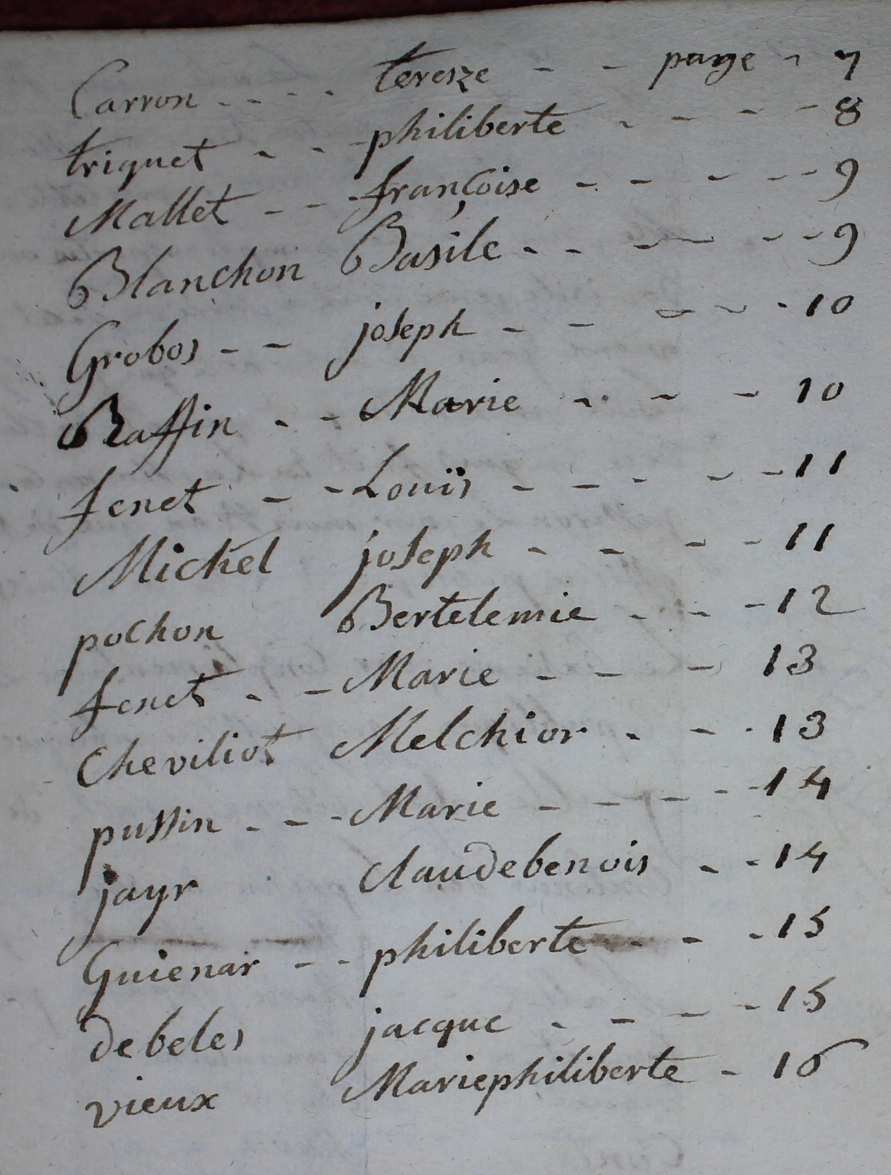 Carron - - - - teresze - - page - 7
triquet - - - philiberte - - - - 8
Mallet - - - françoise - - - - - 9
Blanchon Basile - - - - - - 9
Grobos - - joseph - - - - - 10
Raffin - - Marie - - - - 10
fenet - - - Louïs - - - - - - 11
Michel joseph - - - - 11
pochon Bertelemie - - - 12
fenet - - Marie - - - 13
Cheviliot Melchior - - - 13
pussin - - - Marie - - - - - 14
jayr Claudebenois - - 14
Guienar - - philiberte - - - 15
debeles jacque - - - - 15
vieux Mariephiliberte - 16